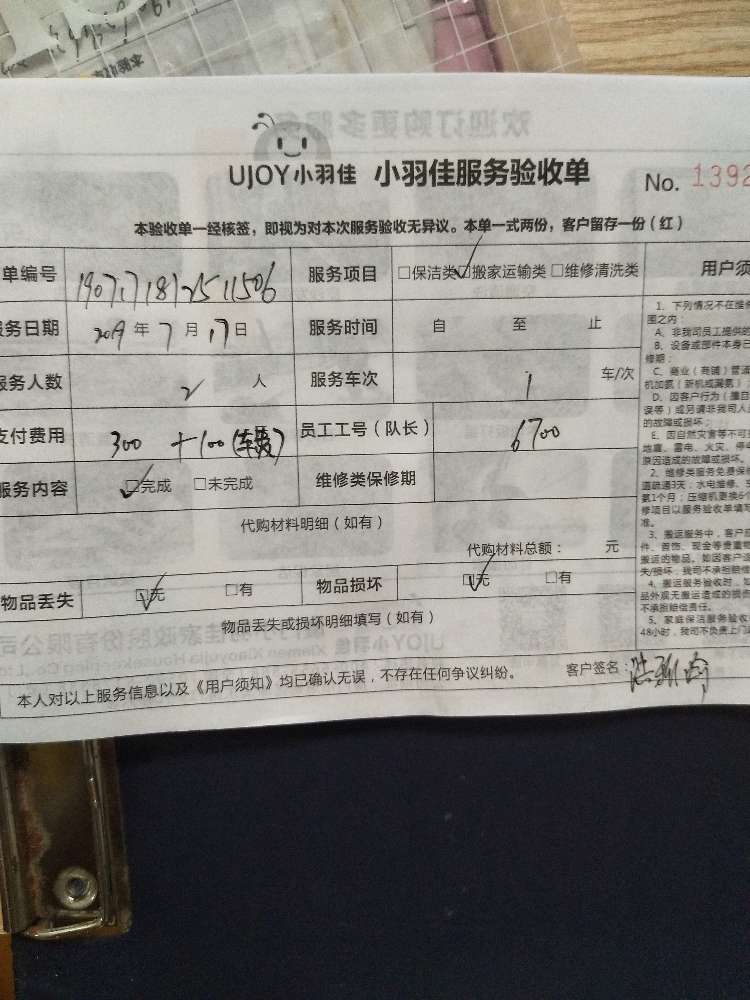 UJOY小羽佳 小羽佳服务验收单 No. 1392
本验收单一经核签，即视为对本次服务验收无异议。本单一式两份，客户留存一份(红)
单编号 190717181251506 服务项目 □保洁类 ☑搬家运输类 □维修清洗类 用户须
服务日期 2019 年 7 月 17 日 服务时间 自 至 止
服务人数 2 人 服务车次 1 车/次
支付费用 300 +100(车费) 员工工号（队长） 6700
服务内容 ☑完成 □未完成 维修类保修期
代购材料明细（如有）
代购材料总额： 元
物品丢失 ☑无 □有 物品损坏 ☑无 □有
物品丢失或损坏明细填写（如有）
本人对以上服务信息以及《用户须知》均已确认无误，不存在任何争议纠纷。 客户签名：
1、下列情况不在维修
围之内：
A、非我司员工提供的
B、设备或部件本身已
修期；
C、商业（商铺）管道
机加氨（新机或漏氨）
D、因客户行为（擅自
误等）或另请非我司人
的故障或损坏；
E、因自然灾害等不可
地震、雷电、火灾、停
原因造成的故障或损坏。
2、维修类服务免费保
道疏通3天；水电维修、
氨1个月；压缩机更换6个
修项目以服务验收单填写
准。
3、搬运服务中，客户应
件、首饰、现金等贵重物
搬运的物品。如因客户
失/损坏，我司不承担赔偿
4、搬运服务验收时，如
品外观无搬运造成的损
不承担赔偿责任。
5、家庭保洁服务验收
48小时，我司不负责上门